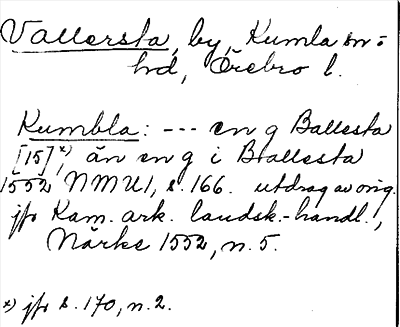 Vallersta, by, Kumla sn o
hd, Örebro l.
Kumbla: --- en g Ballesta
[15]x), än en g i Ballesta
1552 NMU1, s. 166. utdrag av orig.
jfr Kam. ark. landsk.-handl.,
Närke 1552, n. 5.
x) jfr s. 170, n. 2.